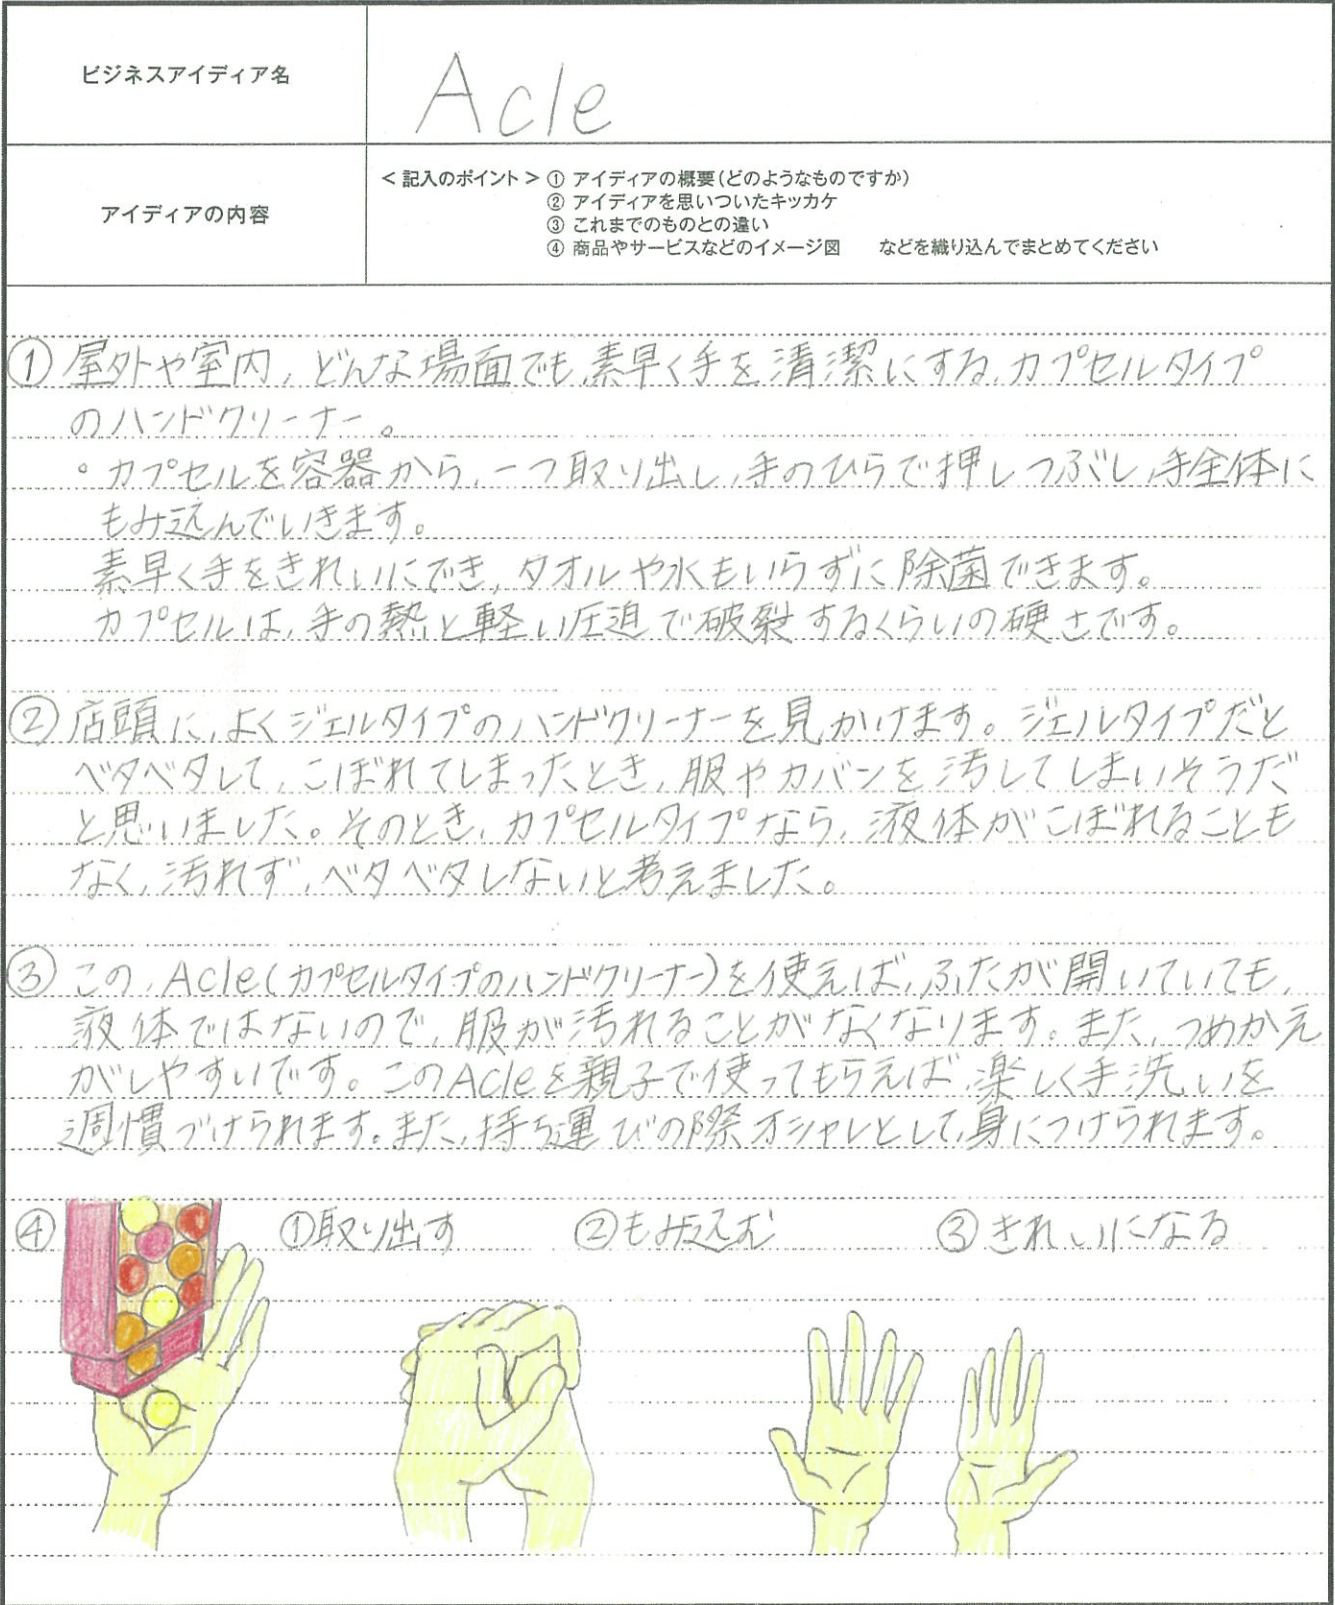 ビジネスアイディア名
Acle
アイディアの内容
<記入のポイント> ① アイディアの概要(どのようなものですか)
② アイディアを思いついたキッカケ
③ これまでのものとの違い
④ 商品やサービスなどのイメージ図　などを織り込んでまとめてください
① 屋外や室内、どんな場面でも、素早く手を清潔にする、カプセルタイプ
のハンドクリーナー。
・カプセルを容器から、一つ取り出し、手のひらで押しつぶし、手全体に
もみ込んでいきます。
素早く手をきれいにでき、タオルや水もいらずに除菌できます。
カプセルは、手の熱と軽い圧迫で破裂するくらいの硬さです。
② 店頭に、よくジェルタイプのハンドクリーナーを見かけます。ジェルタイプだと
ベタベタして、こぼれてしまったとき、服やカバンを汚してしまいそうだ
と思いました。そのとき、カプセルタイプなら、液体がこぼれることも
なく、汚れず、ベタベタしないと考えました。
③ この、Acle(カプセルタイプのハンドクリーナー)を使えば、ふたが開いていても、
液体ではないので、服が汚れることがなくなります。また、つめかえ
がしやすいです。このAcleを親子で使ってもらえば、楽しく手洗いを
週慣づけられます。また、持ち運びの際オシャレとして、身につけられます。
④ ①取り出す ②もみ込む ③きれいになる